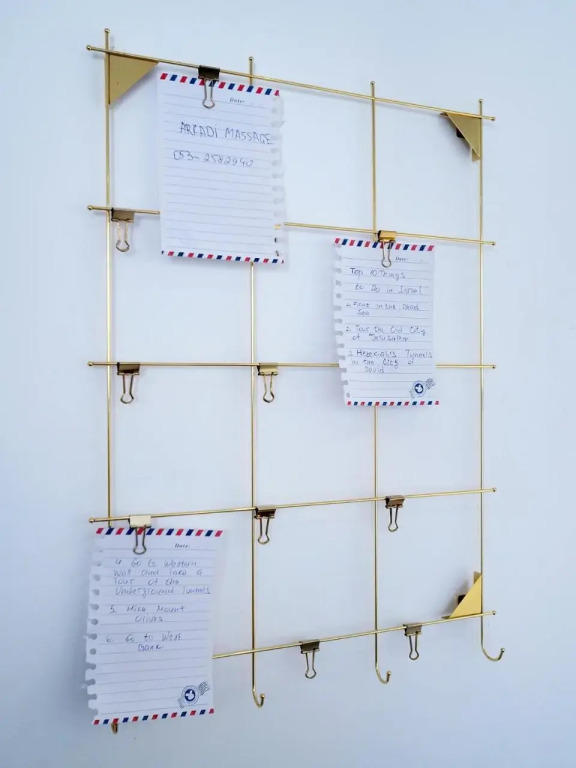 Date:
ARCADI MASSAGE
053-2582940
Date:
Top 10 Things
to Do in Israel
1. Float in the Dead
Sea
2. Tour the Old City
of Jerusalem
3. Hezekiah's Tunnels
in the City of
David
Date:
4. Go to Western
Wall and take a
Tour of the
Underground Tunnels
5. Hike Mount
Olives
6. Go to West
Bank